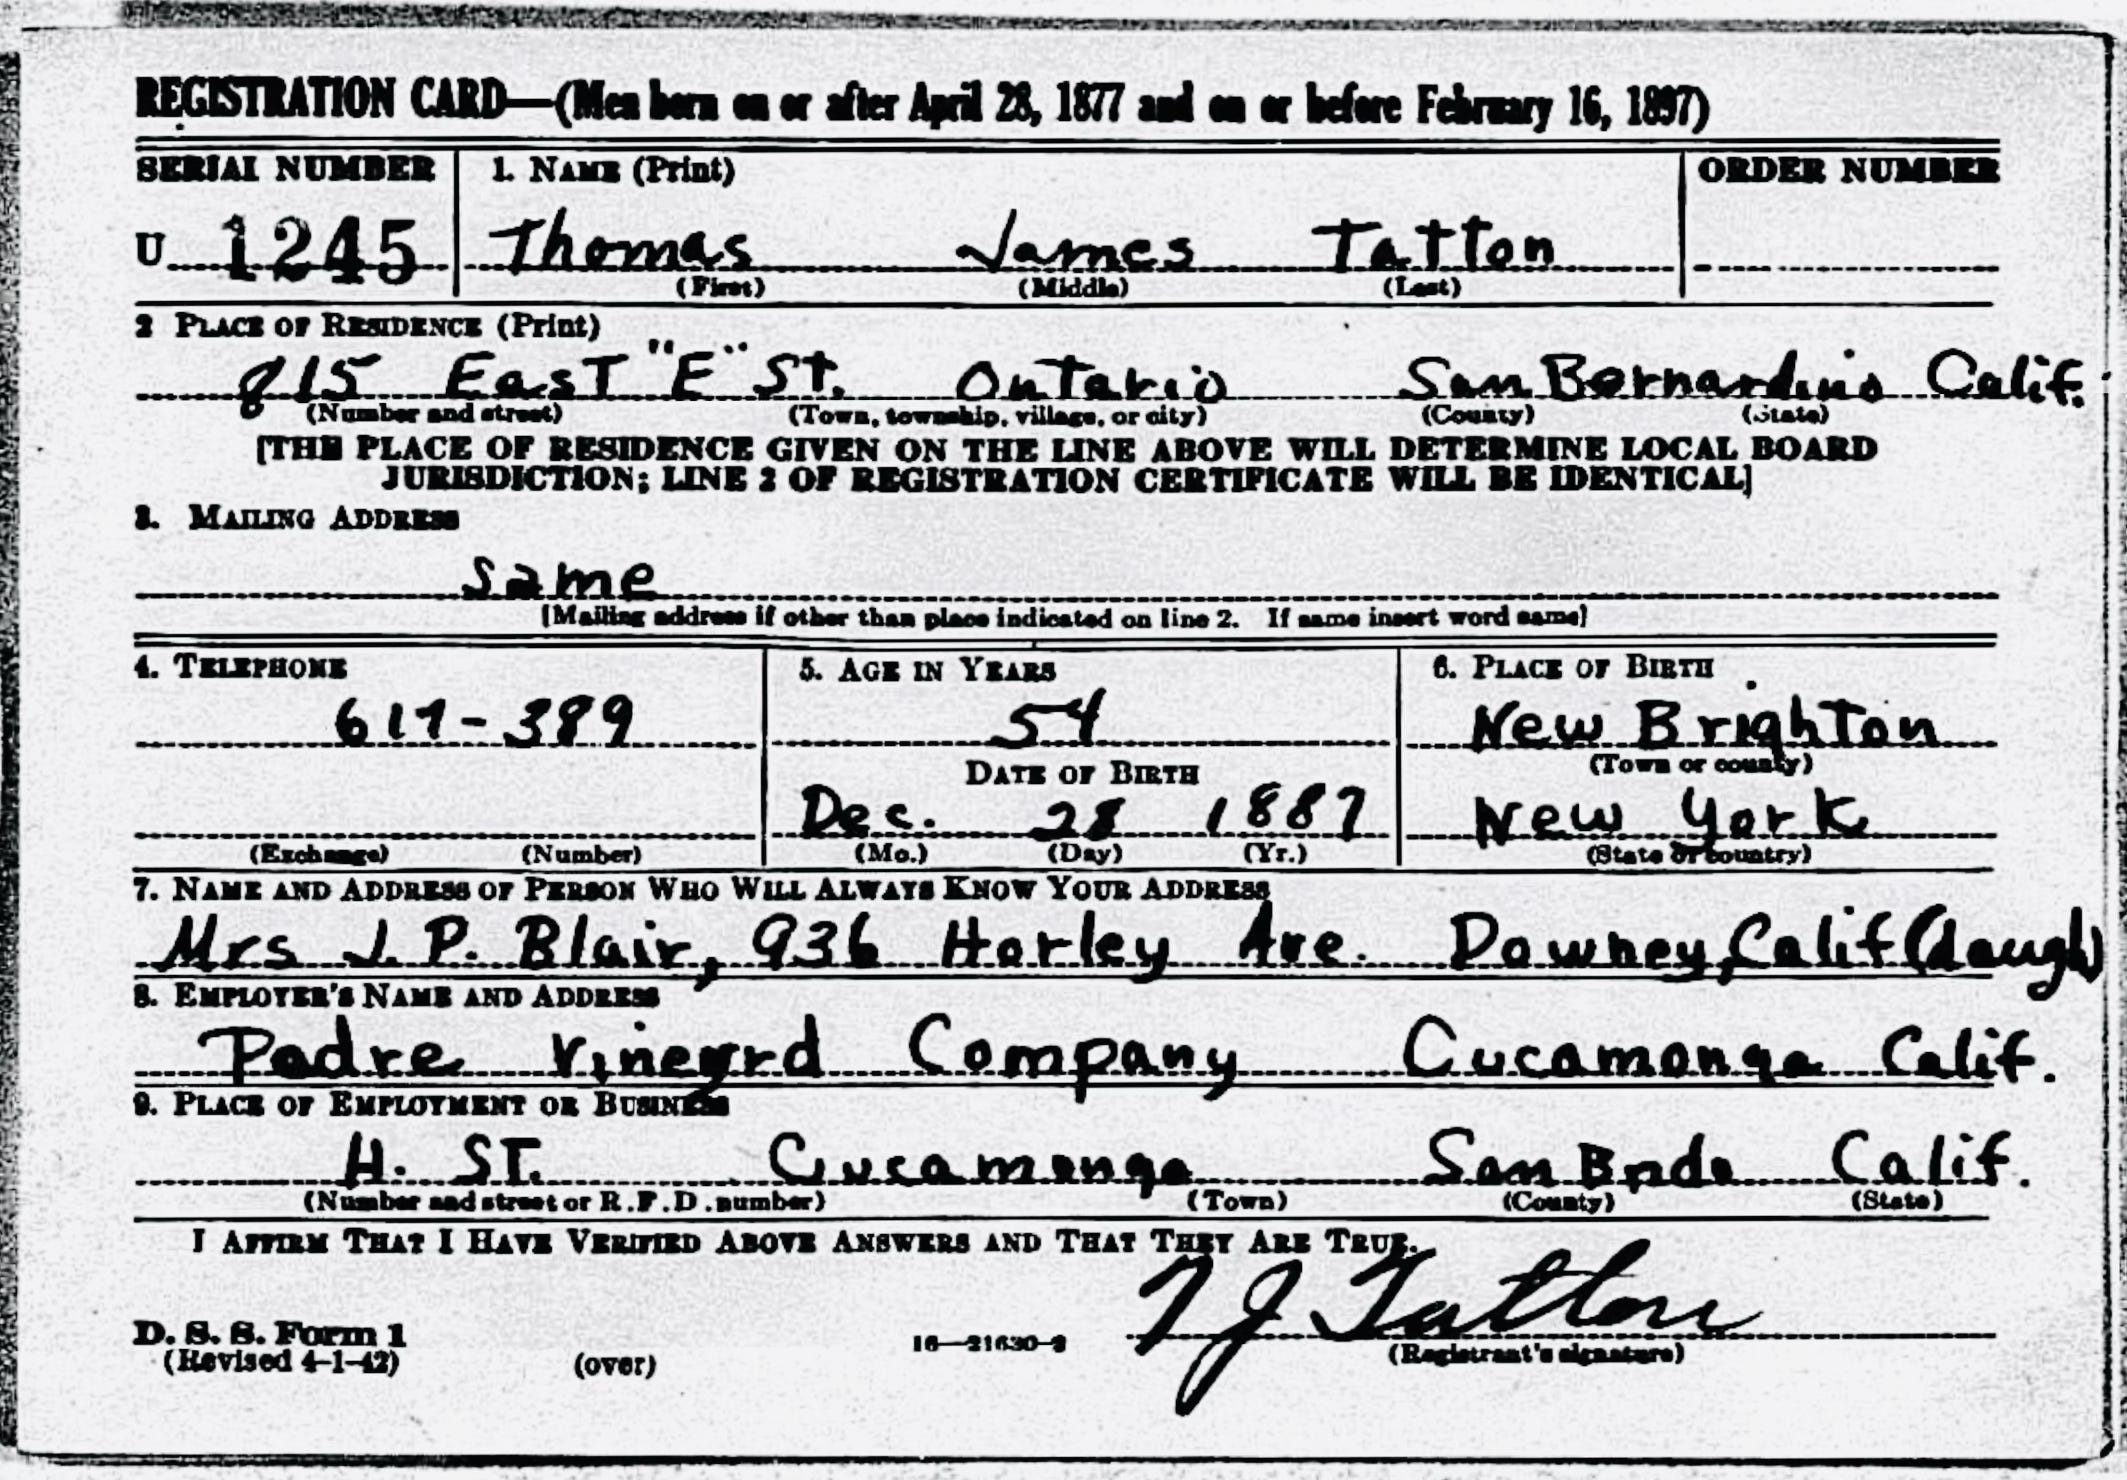 REGISTRATION CARD—(Men born on or after April 28, 1877 and on or before February 16, 1897)
SERIAL NUMBER 1. NAME (Print) ORDER NUMBER
U 1245 Thomas James Tatton
(First) (Middle) (Last)
2 PLACE OF RESIDENCE (Print)
815 East "E" St. Ontario San Bernardino Calif.
(Number and street) (Town, township, village, or city) (County) (State)
[THE PLACE OF RESIDENCE GIVEN ON THE LINE ABOVE WILL DETERMINE LOCAL BOARD
JURISDICTION; LINE 2 OF REGISTRATION CERTIFICATE WILL BE IDENTICAL]
3. MAILING ADDRESS
Same
[Mailing address if other than place indicated on line 2. If same insert word same]
4. TELEPHONE 5. AGE IN YEARS 6. PLACE OF BIRTH
617-389 54 New Brighton
DATE OF BIRTH (Town or county)
Dec. 28 1887 New York
(Exchange) (Number) (Mo.) (Day) (Yr.) (State or country)
7. NAME AND ADDRESS OF PERSON WHO WILL ALWAYS KNOW YOUR ADDRESS
Mrs J. P. Blair, 936 Horley Ave. Downey, Calif (daugh)
8. EMPLOYER'S NAME AND ADDRESS
Padre Vineyrd Company Cucamonga Calif.
9. PLACE OF EMPLOYMENT OR BUSINESS
H. ST. Cucamonga San Brdo Calif.
(Number and street or R.F.D. number) (Town) (County) (State)
I AFFIRM THAT I HAVE VERIFIED ABOVE ANSWERS AND THAT THEY ARE TRUE.
T J Tatton
D. S. S. Form 1 16—21630-2
(Revised 4-1-42) (over) (Registrant's signature)